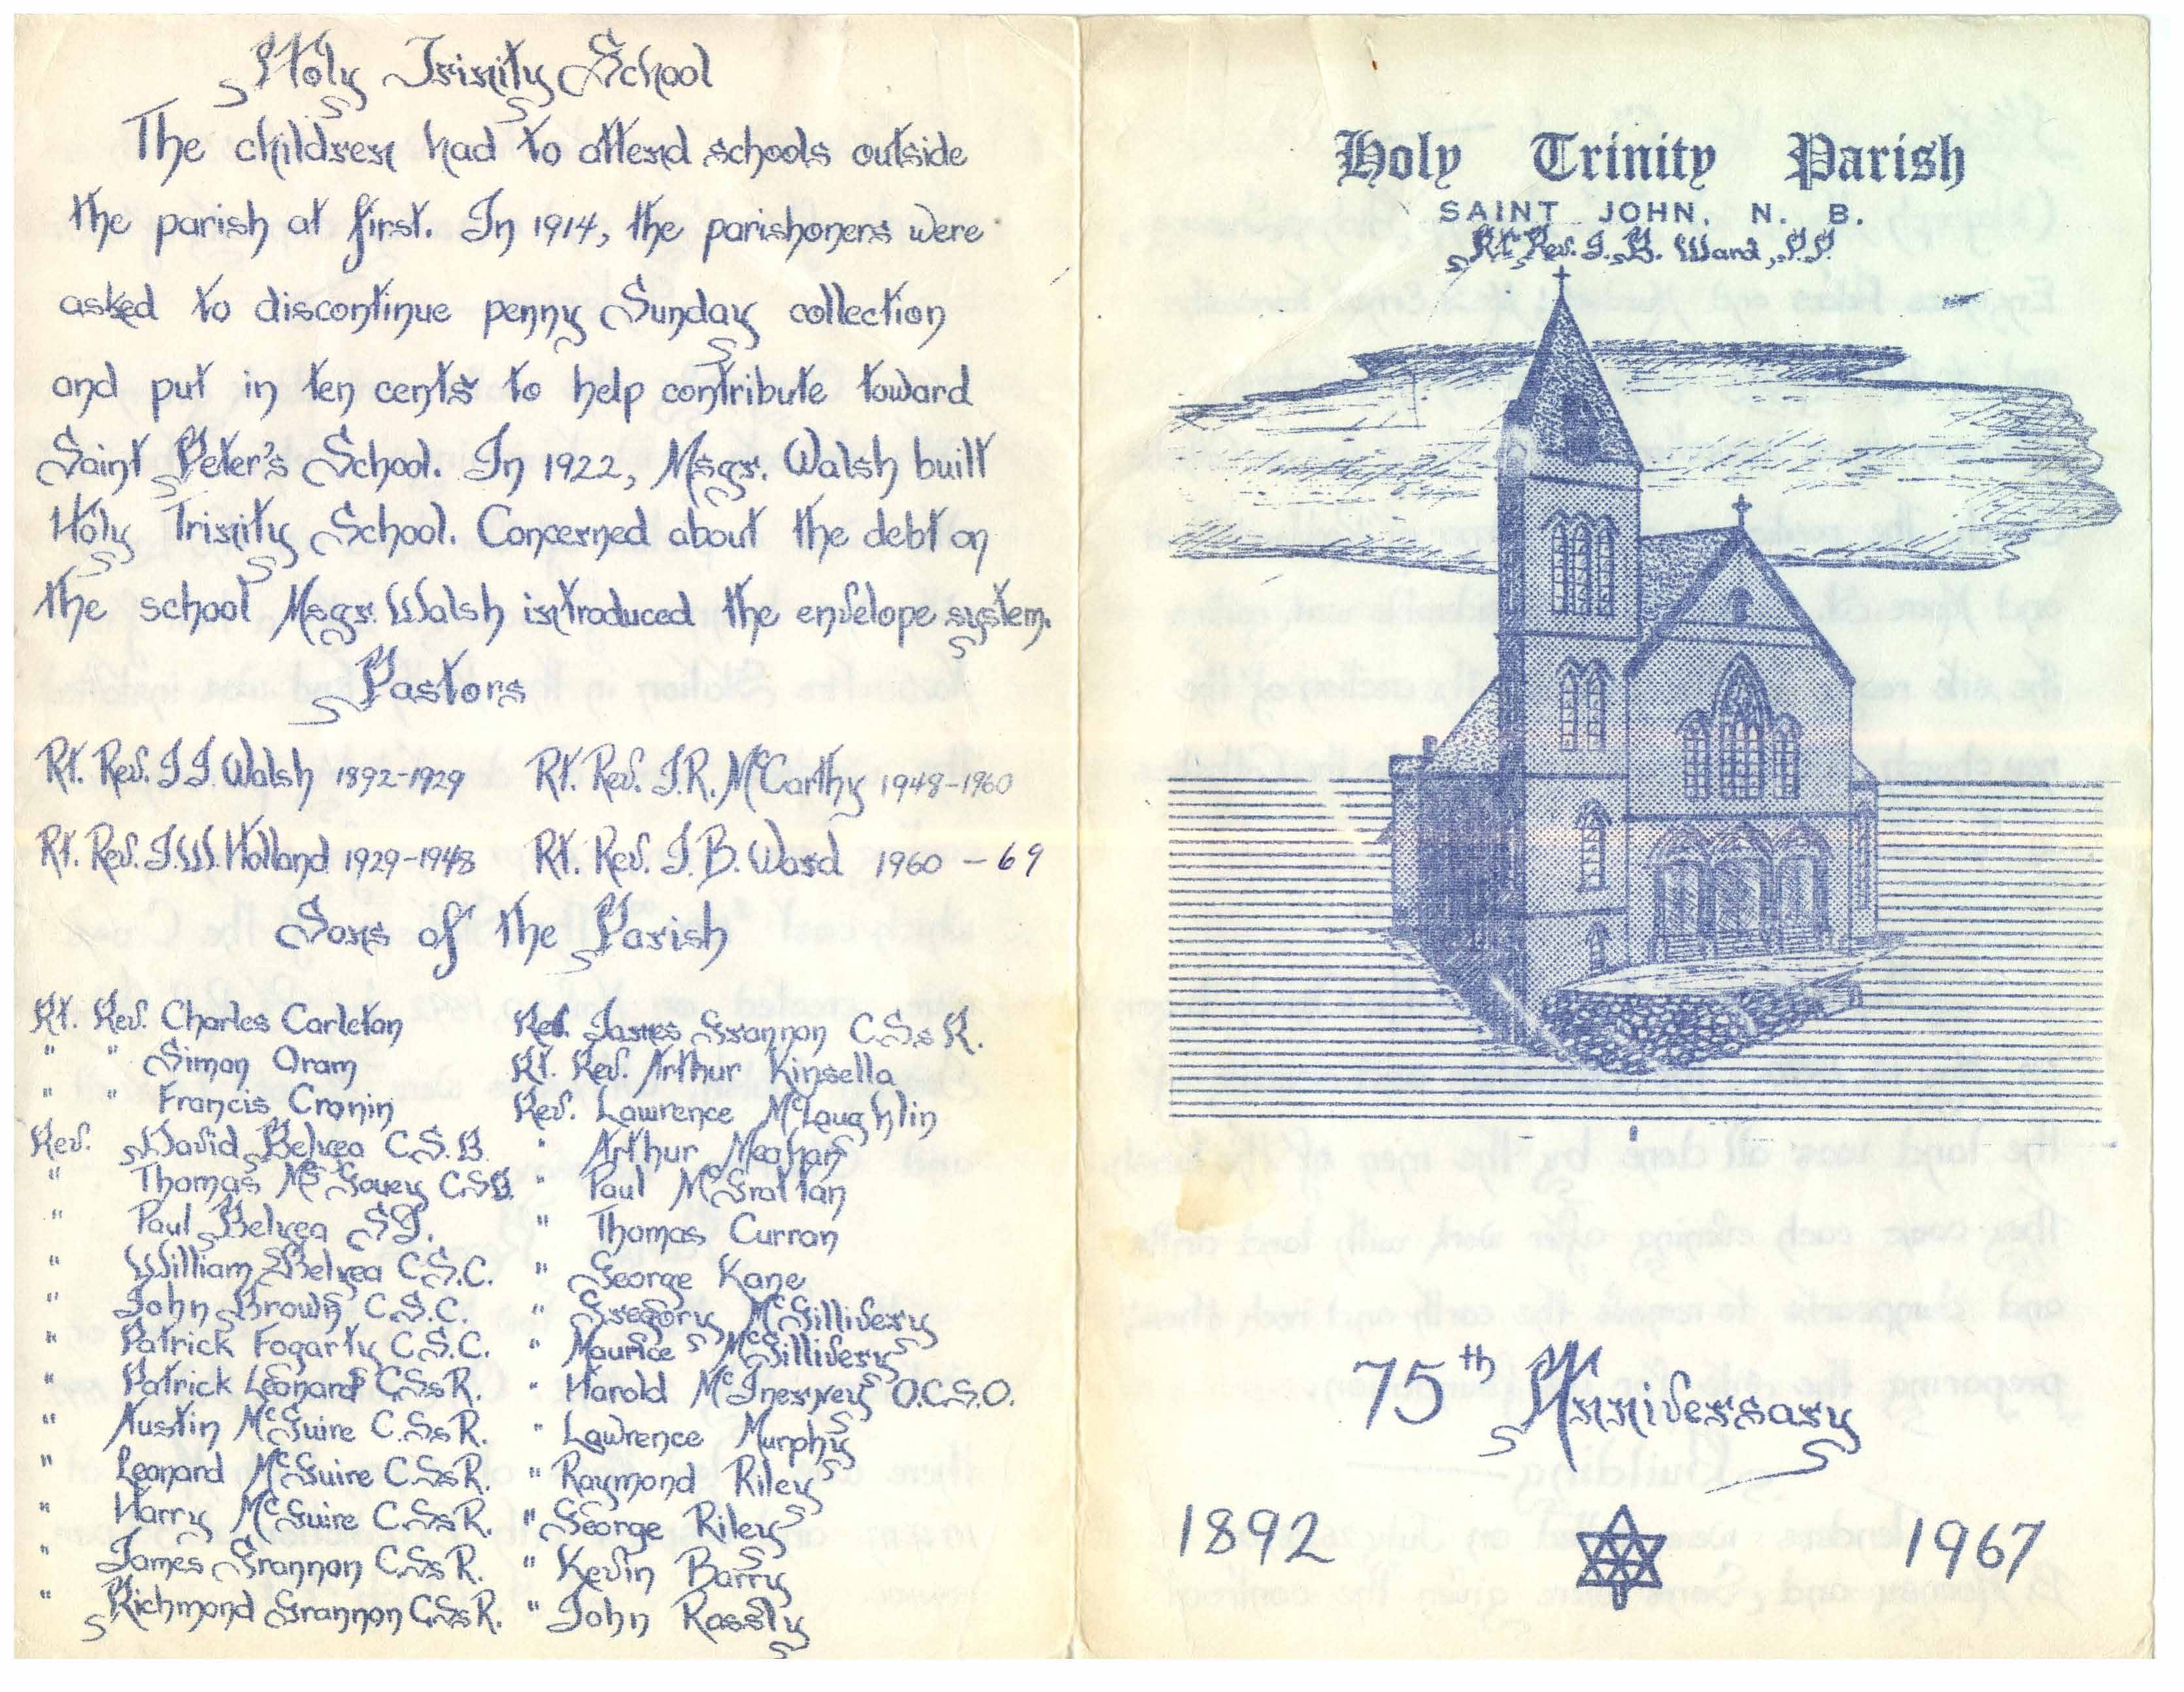 Holy Trinity School
The children had to attend schools outside
the parish at first. In 1914, the parishoners were
asked to discontinue penny Sunday collection
and put in ten cents to help contribute toward
Saint Peter's School. In 1922, Msgr. Walsh built
Holy Trinity School. Concerned about the debt on
the school Msgr. Walsh introduced the envelope system.
Pastors
Rt. Rev. J.J. Walsh 1892-1929 Rt. Rev. J.R. McCarthy 1948-1960
Rt. Rev. J.W. Holland 1929-1948 Rt. Rev. J.B. Ward 1960 - 69
Sons of the Parish
Rt. Rev. Charles Carletan Rev. James Grannon C.Ss.R.
" " Simon Oram Rt. Rev. Arthur Kinsella
" " Francis Cronin Rev. Lawrence McLaughlin
Rev. David Belyea C.S.B. " Arthur Meahan
" Thomas McGovey C.S.B. " Paul McGrattan
" Paul Belyea S.J. " Thomas Curran
" William Belyea C.S.C. " George Kane
" John Brown C.S.C. " Gregory McGillivery
" Patrick Fogarty C.S.C. " Maurice McGillivery
" Patrick Leonard C.Ss.R. " Harold McInerney O.C.S.O.
" Austin McGuire C.Ss.R. " Lawrence Murphy
" Leonard McGuire C.Ss.R. " Raymond Riley
" Harry McGuire C.Ss.R. " George Riley
" James Grannon C.Ss.R. " Kevin Barry
" Richmond Grannon C.Ss.R. " John Rossly
Holy Trinity Parish
SAINT JOHN, N. B.
Rt. Rev. J. B. Ward, P.P.
75th Anniversary
1892 1967